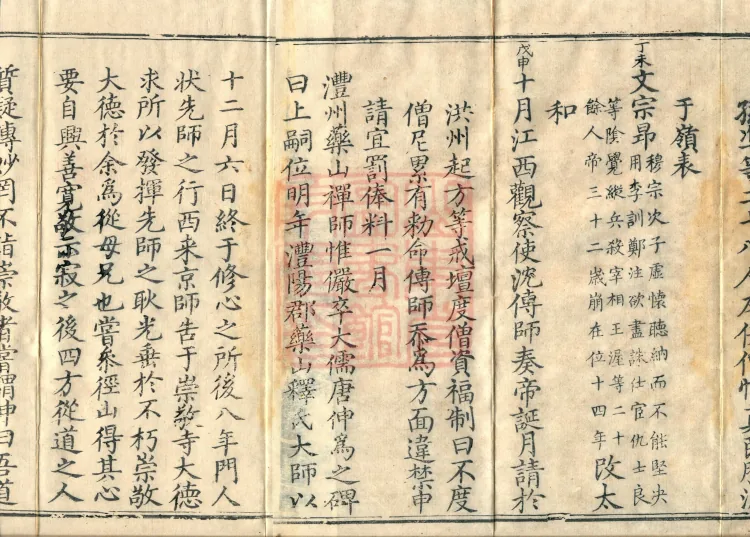 于嶺表
丁未文宗昂
穆宗次子虛懷聽納而不能堅决
用李訓鄭注欲盡誅仕宦仇士良
等陰覺縱兵殺宰相王渥等二十
餘人帝三十二歲崩在位十四年
改太
和
戊申十月江西觀察使沈傳師奏帝誕月請於
洪州起方等戒壇度僧資福制曰不度
僧尼累有勑命傳師忝為方面違禁申
請宜罰俸料一月
澧州藥山禪師惟儼卒大儒唐伸為之碑
曰上嗣位明年澧陽郡藥山釋氏大師以
十二月六日終于修心之所後八年門人
状先師之行西来京師告于崇敬寺大德
求所以發揮先師之耿光垂於不朽崇敬
大德於余為從母兄也嘗叅徑山得其心
要自興善寛敬示寂之後四方從道之人
質疑傳妙罔不詣崇敬者嘗謂伸曰吾道